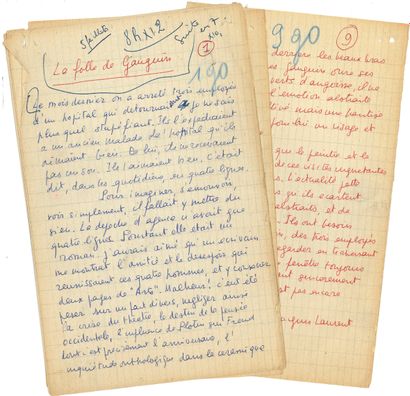 5 feuillets
8h x 12
La folle de Gauguin
1
190
Le mois dernier on a arrêté trois employés
d'un hôpital qui détournaient je ne sais
plus quel stupéfiant. Ils l'expédiaient
à un ancien malade de l'hôpital qu'ils
aimaient bien. Lui, ils ne recevaient
pas un son. Ils l'aimaient bien, c'était
dit, dans les quotidiens, en quatre lignes.
Pour imaginer, s'émouvoir,
voir simplement, il fallait y mettre du
sien. La dépêche d'agence n'avait que
quatre lignes. Pourtant elle était un
roman. J'aurais aimé qu'un écrivain
me montrât l'amitié et le désespoir qui
réunissaient ces quatre hommes, et y consacrer
deux pages de "Arts". Malheur! c'eut été
peser sur un fait divers, négliger
la crise du théâtre, le destin de la pensée
occidentale, l'influence de Plotin sur Freud
dont c'est précisément l'anniversaire, l'
inquiétude mythologique dans la céramique
990
9
derrière les beaux bras
Gauguin ouvre ses
verts d'angoisse, il ve
l'émotion abstraite
mais un
un visage et
que le peintre et le
de ces visites
L'actualité jette
qu'ils écartent
abstraits, et de
Ils ont besoin
des trois employés
regarder en traversant
fenêtre toujours
pas encore
Jacques Laurent